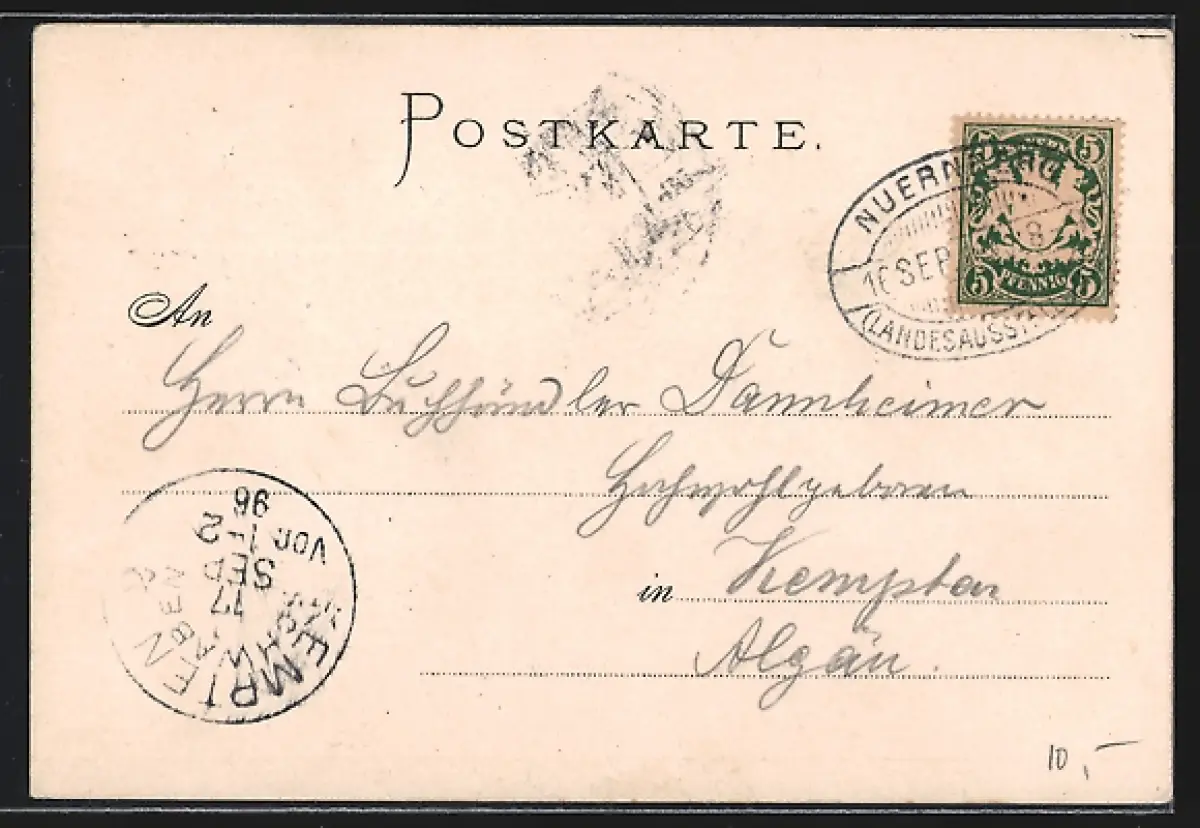 POSTKARTE.
5 5
NUERNBERG
16 SEP 8
5 PFENNIG 5
(LANDESAUSST.
An
Herrn Buchhändler Dannheimer
Hochwohlgeboren
in Kempten
Algäu.
KEMPTEN
SCHWABEN
17
SEP
VOR. 1-2
96
10,-